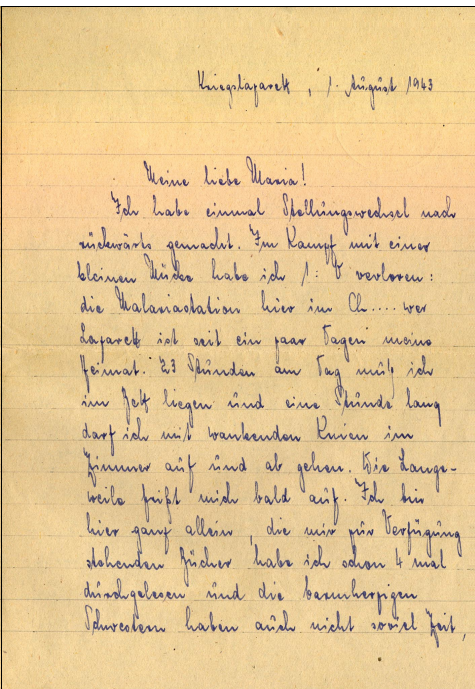 Kriegslazarett, 1. August 1943
Meine liebe Maria!
Ich habe einmal Stellungswechsel nach
rückwärts gemacht. Im Kampf mit einer
kleinen Mücke habe ich 1:0 verloren:
die Malariastation hier im Ch....wer
Lazarett ist seit ein paar Tagen meine
Heimat. 23 Stunden am Tag muß ich
im Bett liegen und eine Stunde lang
darf ich mit wankenden Knien im
Zimmer auf und ab gehen. Die Lange-
weile frißt mich bald auf. Ich bin
hier ganz allein, die mir zur Verfügung
stehenden Bücher habe ich schon 4 mal
durchgelesen und die barmherzigen
Schwestern haben auch nicht soviel Zeit,